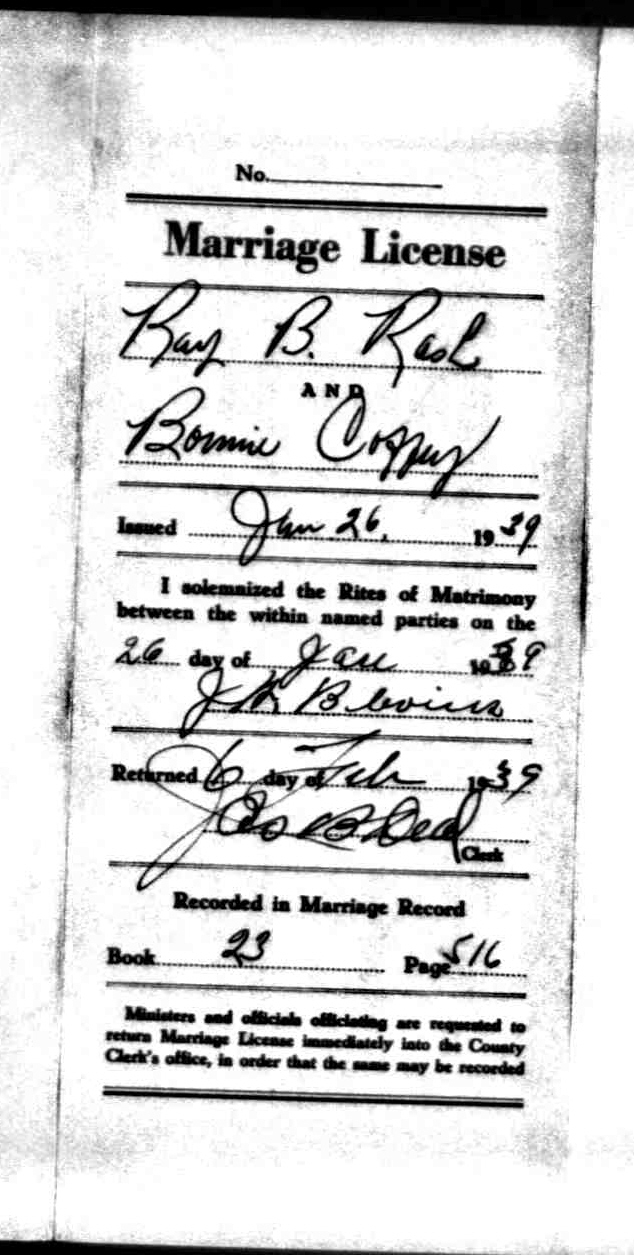 No.
Marriage License
Ray B. Rash
AND
Bonnie
Issued Jan 26, 1939
I solemnized the Rites of Matrimony
between the within named parties on the
26 day of Jan 1939
Blevins
Returned 6 day of Feb 1939
B Deal
Clerk
Recorded in Marriage Record
Book 23 Page 516
Ministers and officials officiating are requested to
return Marriage License immediately into the County
Clerk's office, in order that the same may be recorded